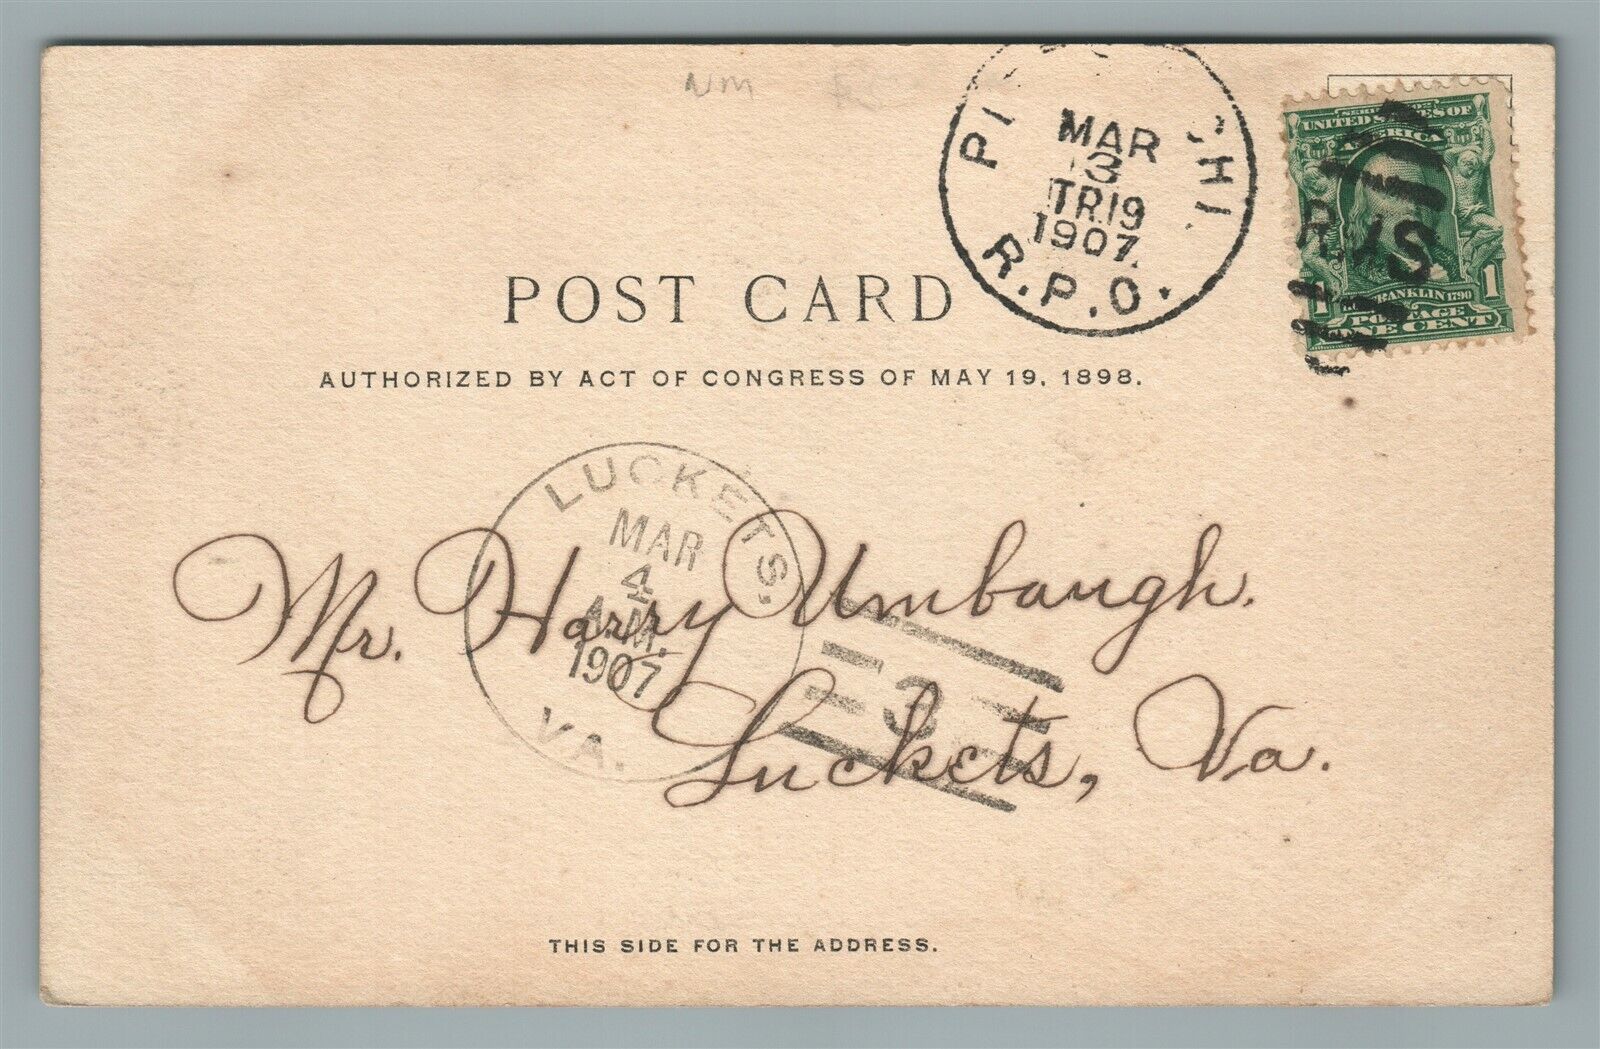 Nm
PI CHI
MAR
3
TR.19
1907.
R.P.O.
SERIES 1902
UNITED STATES OF
AMERICA
R.M.S
FRANKLIN 1790
1 1
POSTAGE
ONE CENT
POST CARD
AUTHORIZED BY ACT OF CONGRESS OF MAY 19, 1898.
LUCKETS,
MAR
4
A.M.
1907
VA.
Mr. Harry Umbaugh.
3
Luckets, Va.
THIS SIDE FOR THE ADDRESS.